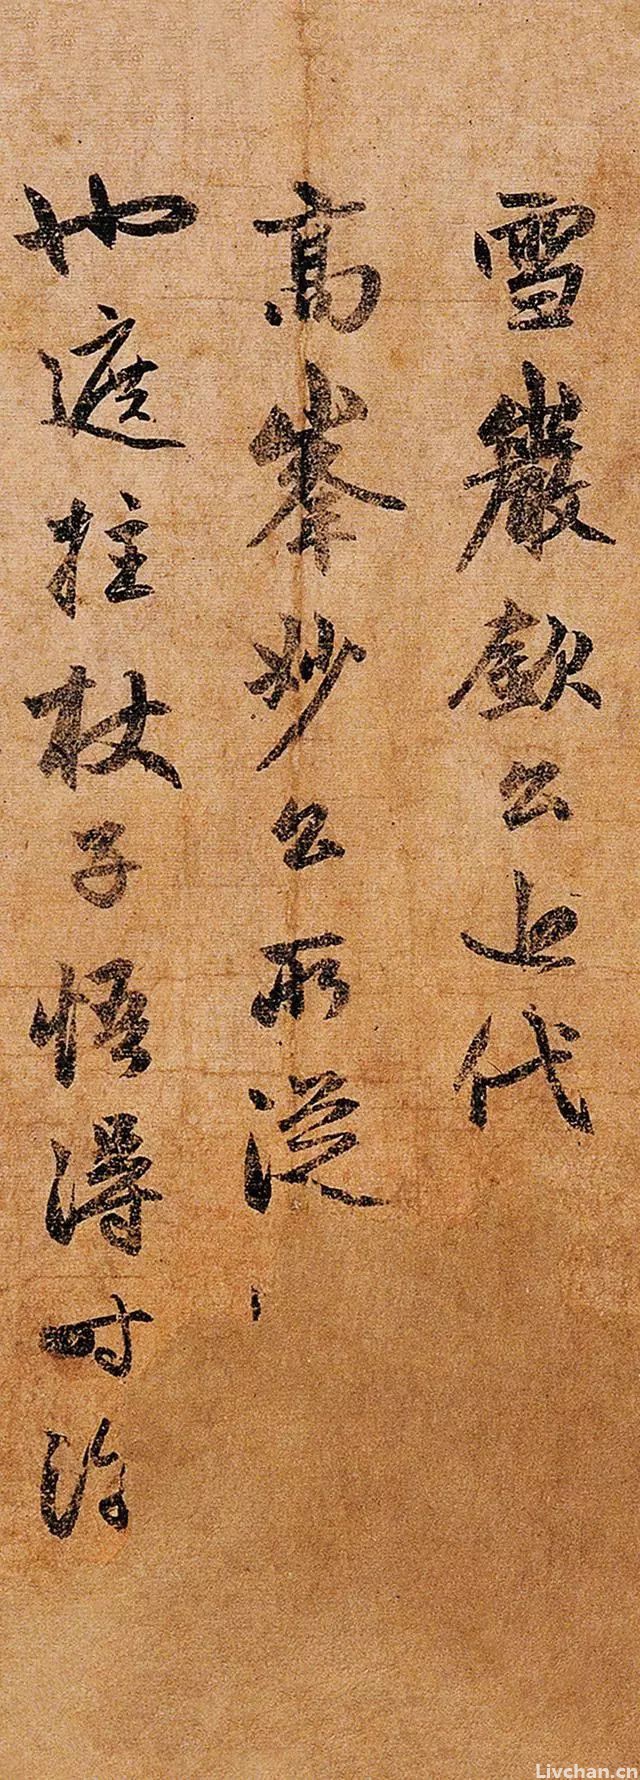 雪巖欽公上代
高峯妙公所從
也遮拄杖子悟得時深
Livchan.cn